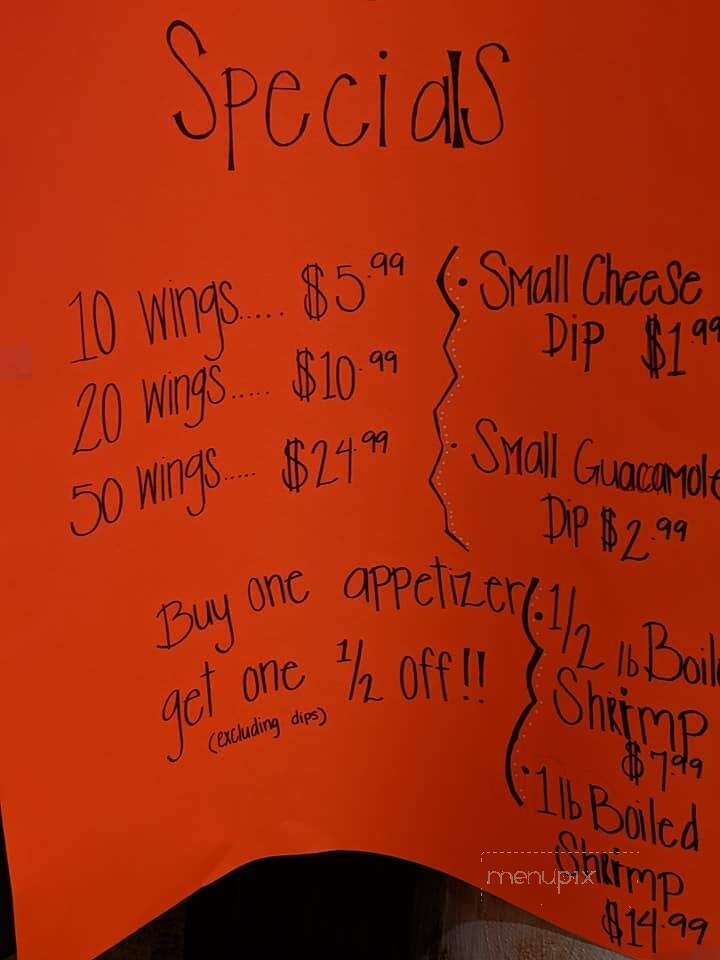 Specials
10 wings..... $5.99
20 wings..... $10.99
50 wings..... $24.99
Buy one appetizer
get one 1/2 off!!
(excluding dips)
• Small Cheese
Dip $1.99
• Small Guacamole
Dip $2.99
• 1/2 lb Boil
Shrimp
$7.99
• 1 lb Boiled
Shrimp
$14.99
menupix